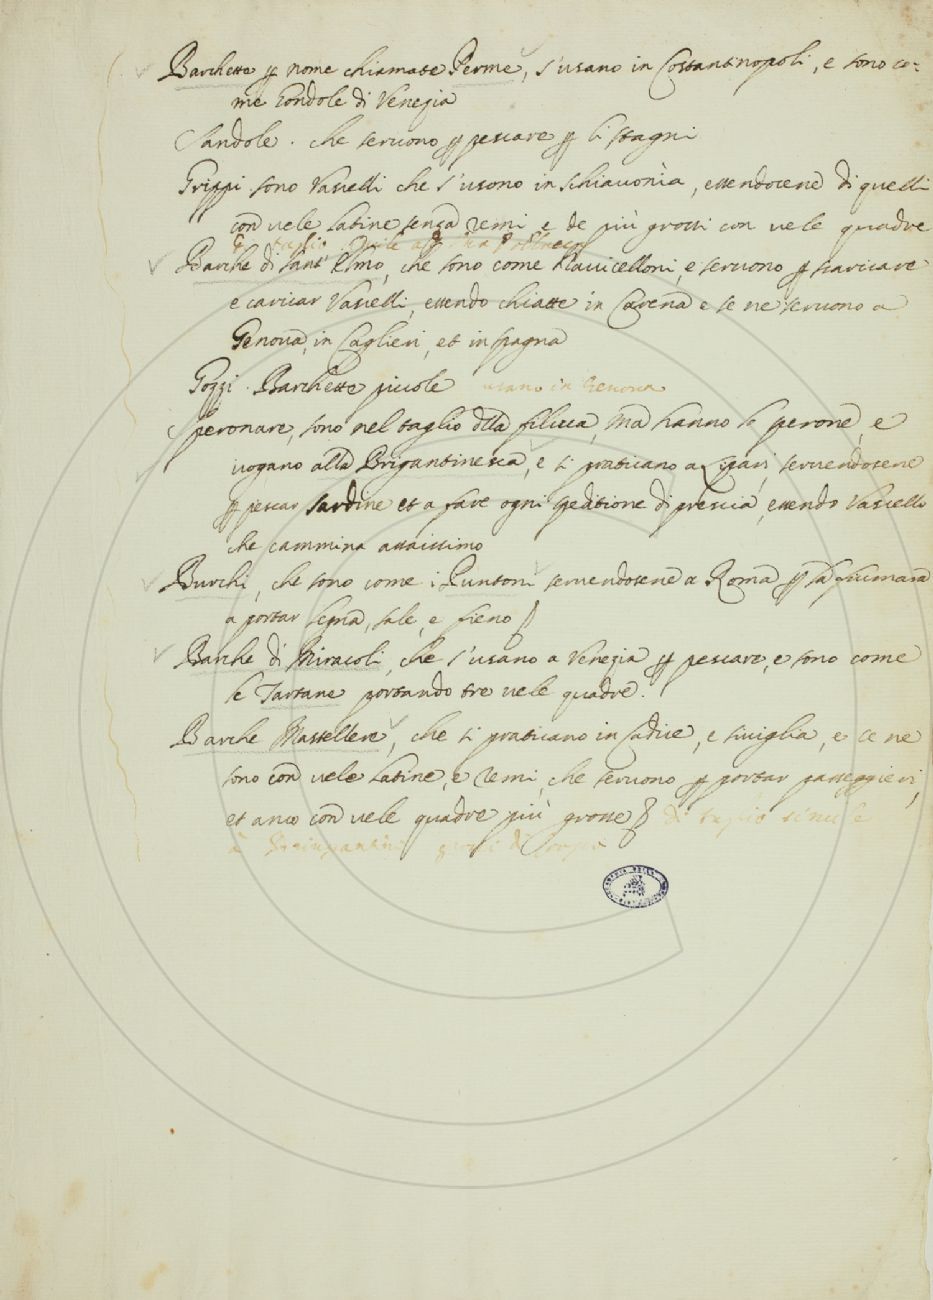 Barchette p nome chiamate Perme, s'usano in Costantinopoli, e sono co-
me Gondole di Venezia
Sandole. che seruono p pescare p li stagni
Grippi sono Vascelli che s'usono in schiauonia, essendocene di quelli
con uele latine senza remi e de più grossi con uele quadre
Barche di sant' Elmo, che sono come Nauicelloni, e seruono p scaricare
e caricar Vascelli, essendo chiatte in Carena e se ne seruono a
Genoua, in Caglieri, et in spagna
Gozzi. Barchette picciole usano in Genoua
Speronare, sono nel taglio dlla filucca, ma hanno lo sperone, e
uogano alla Brigantinesca, e si praticano a Lipari seruendosene
p pescar sardine et a fare ogni speditione di prescia, essendo Vascello
che cammina assaissimo
Burchi, che sono come i Puntoni seruendosene a Roma p la fiumara
a portar legna, sale, e fieno
Barche di Miracoli, che s'usano a Venezia p pescare, e sono come
le Tartane portando tre uele quadre.
Barche Mastellere, che si praticano in Cadice, e siuiglia, e ce ne
sono con uele latine, e remi, che seruono p portar passeggieri,
et anco con uele quadre più grosse di taglio simile
à